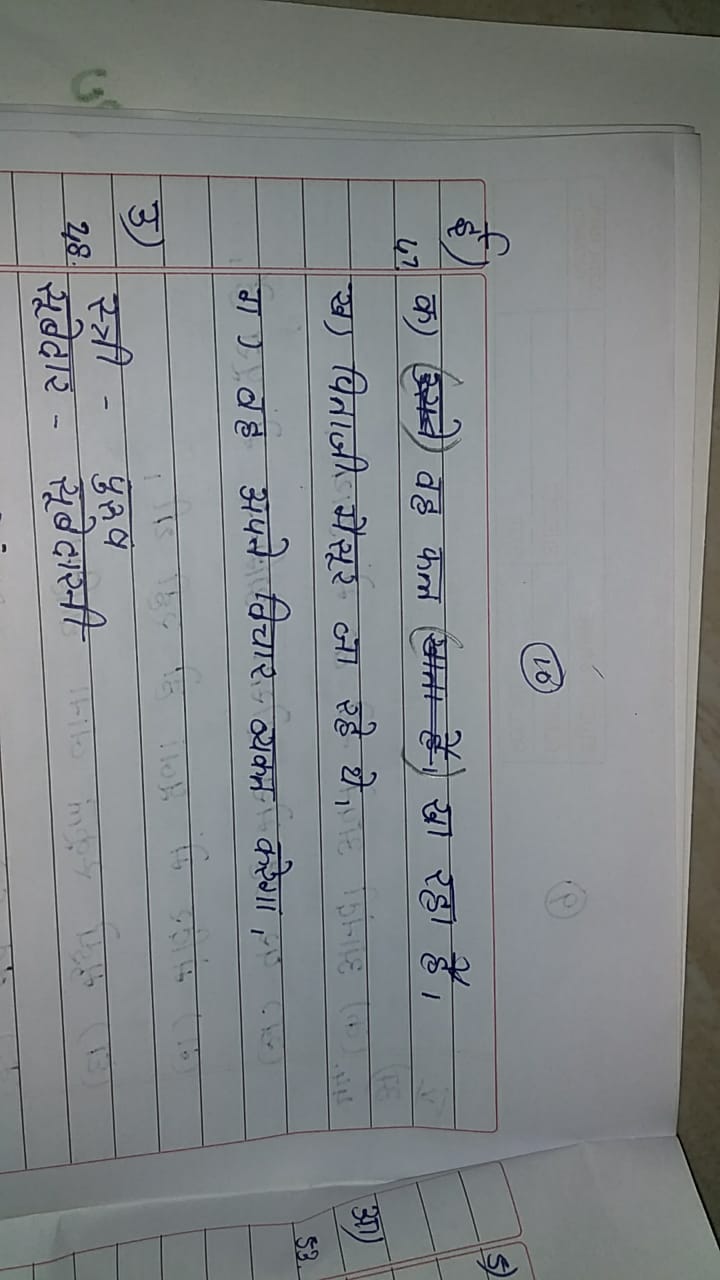 10
ई)
47. क) वह फल खा रहा है।
ख) पिताजी मैसूर जा रहे थे,
ग) वह अपने विचार व्यक्त करेगा,
उ)
48. स्त्री - पुरुष
सूबेदार - सूबेदारनी
आ)
53.